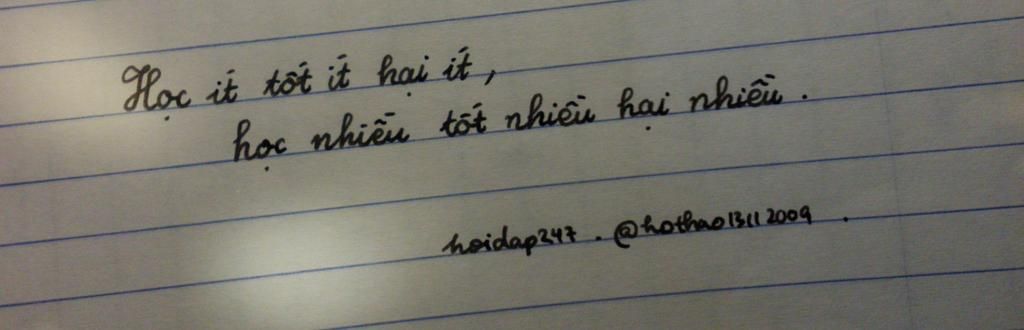 Học ít tốt ít hại ít,
học nhiều tốt nhiều hại nhiều.
hoidap247. @hothao13112009.